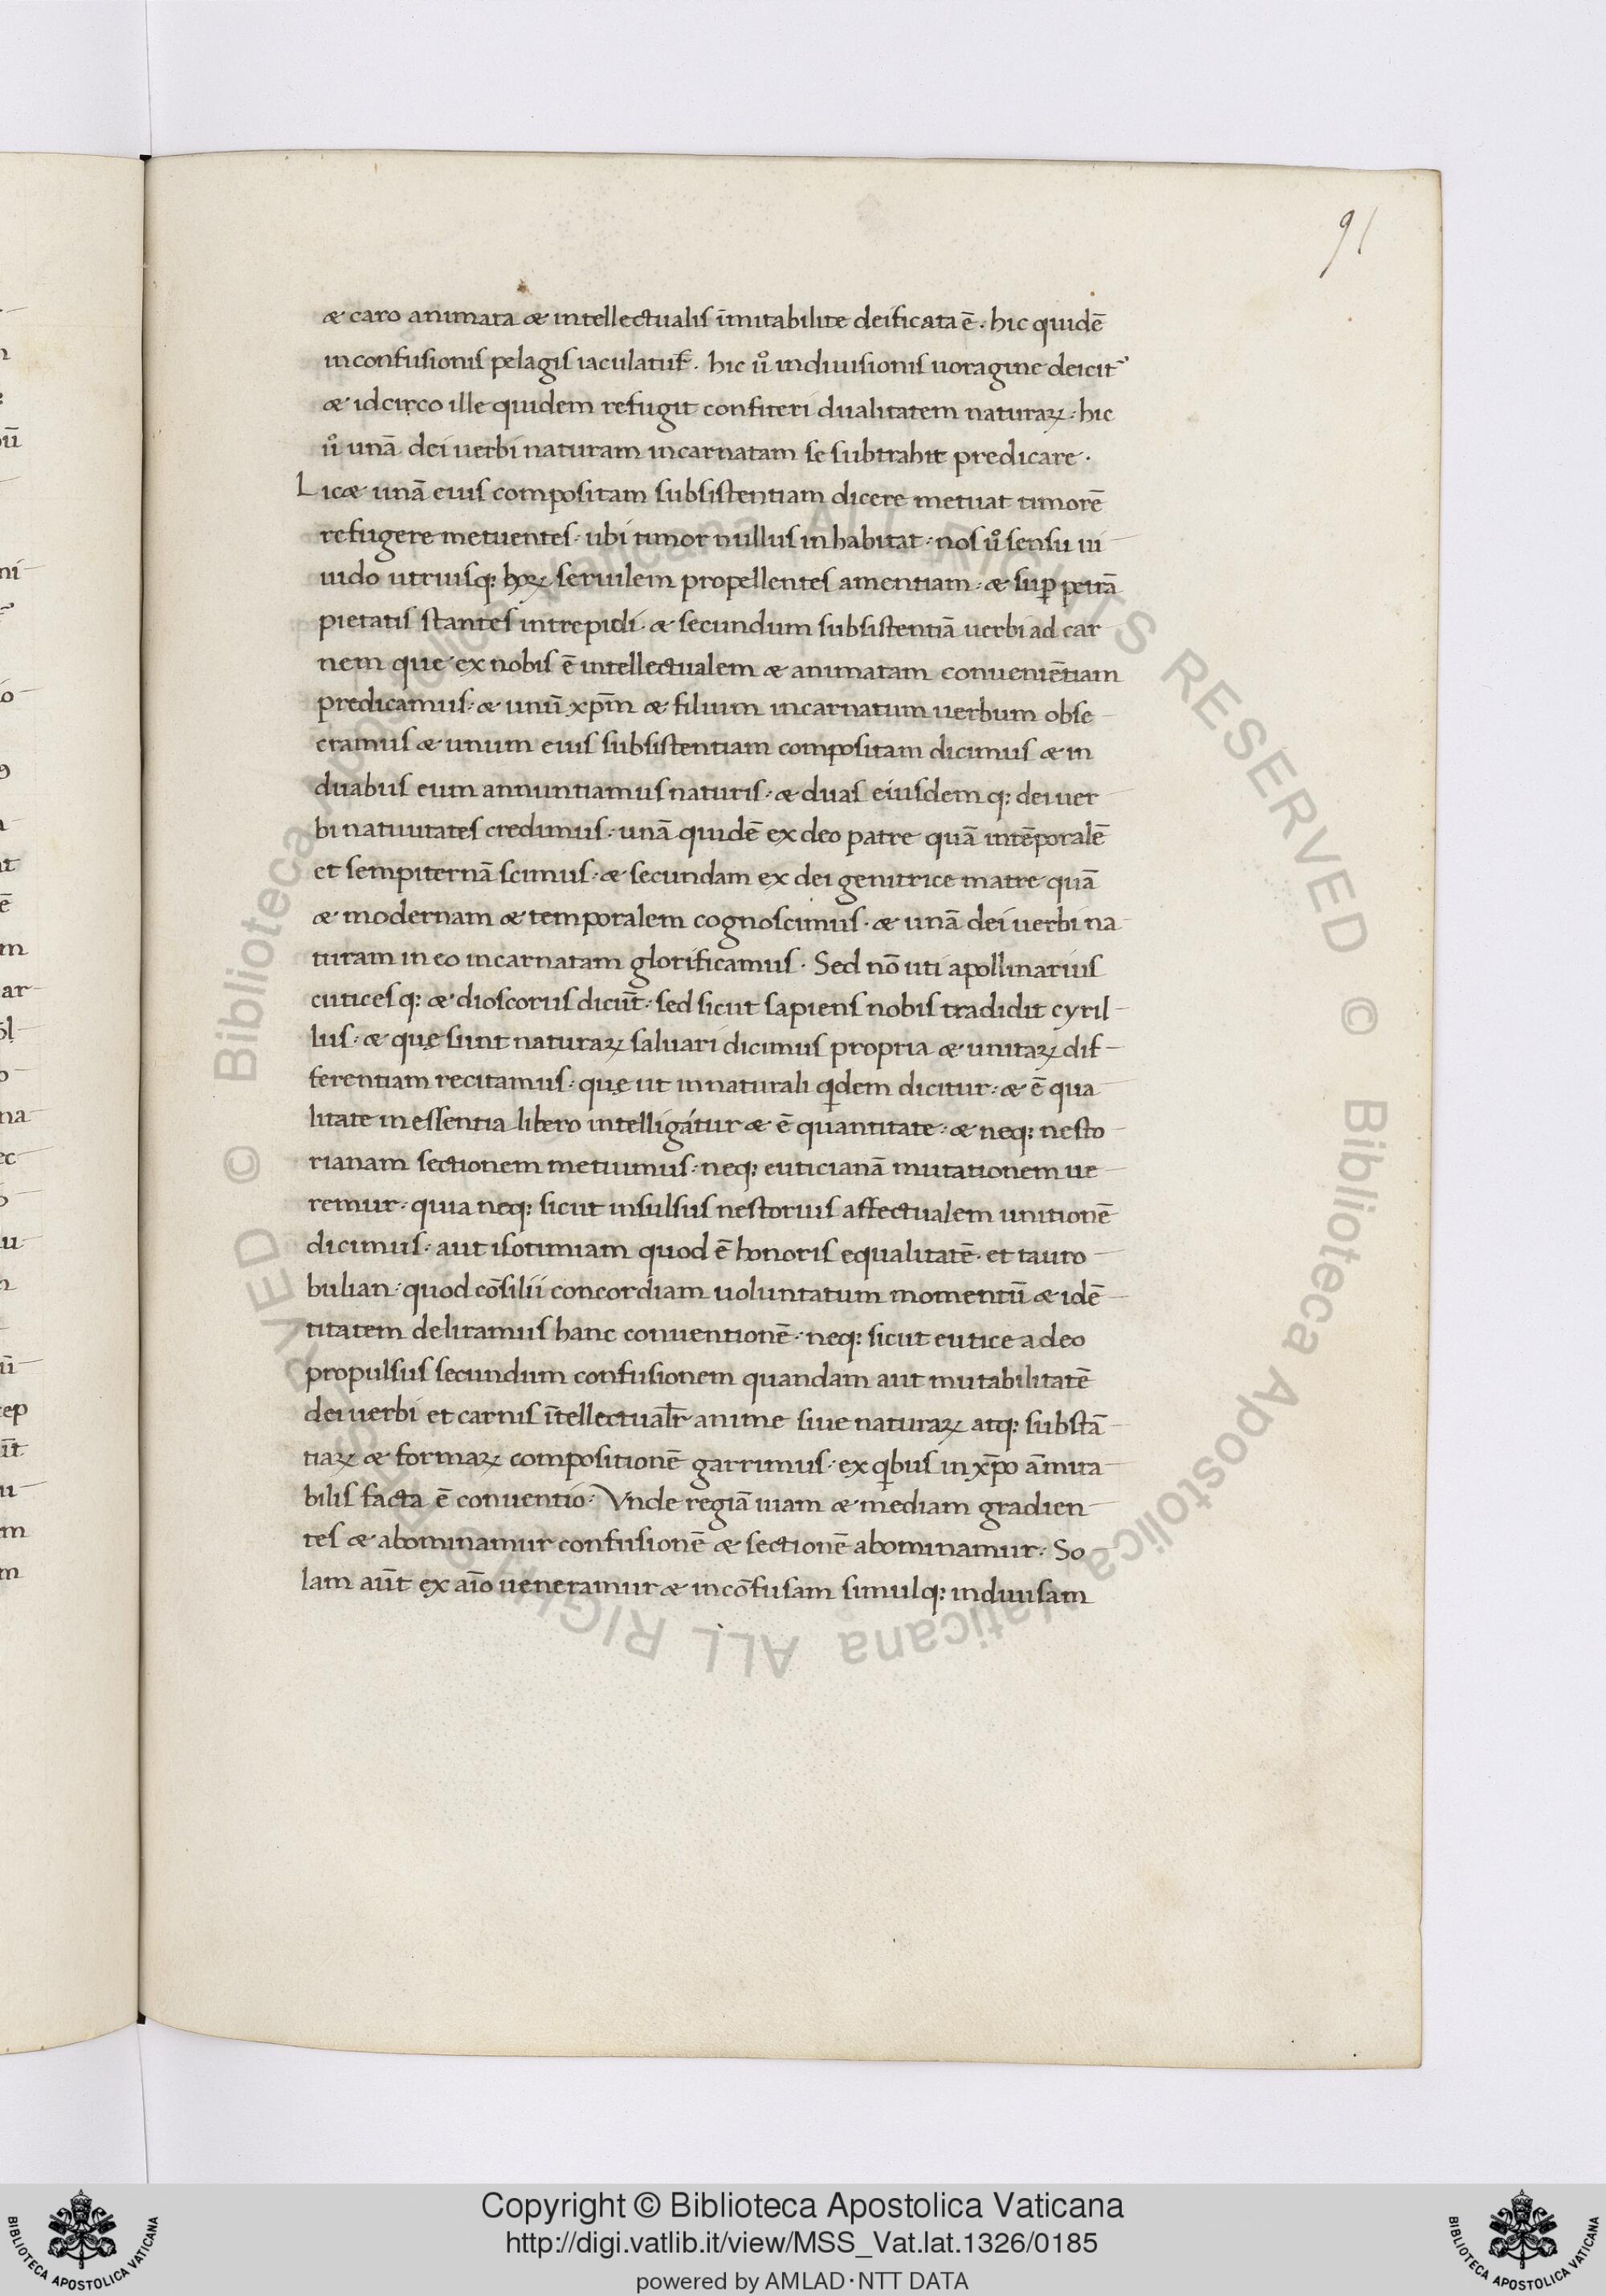 91
& caro animata & intellectualis īmitabilite deificata ē. hic quidē
in confusionis pelagis iaculatur. hic ů indiuisionis uoragine deicit᾽
& idcirco ille quidem refugit confiteri dualitatem naturaꝝ. hic
ů unā dei uerbi naturam incarnatam se subtrahit predicare.
Lic& unā eius compositam subsistentiam dicere metuat timorē
refugere metuentes. ubi timor nullus inhabitat. nos ů sensu ui
uido utriusq; hoꝝ seruilem propellentes amentiam. & suꝑ petrā
pietatis stantes intrepidi. & secundum subsistentiā uerbi ad car
nem que ex nobis ē intellectualem & animatam conueniētiam
predicamus. & unū xp̄m & filium incarnatum uerbum obse
cramus & unum eius subsistentiam compositam dicimus & in
duabus eum annuntiamus naturis. & duas eiusdem q; dei uer
bi natiuitates credimus. unā quidē ex deo patre quā intēporalē
et sempiternā scimus. & secundam ex dei genitrice matre quā
& modernam & temporalem cognoscimus. & unā dei uerbi na
turam in eo incarnatam glorificamus. Sed nō uti apollinarius
euticesq; & dioscorus dicūt. sed sicut sapiens nobis tradidit cyril
lus. & quę sunt naturaꝝ saluari dicimus propria & unitaꝝ dif
ferentiam recitamus. quę ut in naturali qͥdem dicitur. & ē qua
litate in essentia libero intelligatur & ē quantitate. & neq; nesto
rianam sectionem metuimus. neq; euticianā mutationem ue
remur. quia neq; sicut insulsus nestorius affectualem unitionē
dicimus. aut isotimiam quod ē honoris equalitatē. et tauto
bulian. quod cōsilii concordiam uoluntatum momentū & idē
titatem deliramus hanc conuentionē. neq; sicut eutice a deo
propulsus secundum confusionem quandam aut mutabilitatē
dei uerbi et carnis ītellectualr̄ anime siue naturaꝝ atq; substā
tiaꝝ & formaꝝ compositionē garrimus. ex qͥbus in xp̄o āmira
bilis facta ē conuentio. Vnde regiā uiam & mediam gradien
tes & abominamur confusionē & sectionē abominamur. So
lam aūt ex aīo ueneramur & incōfusam simulq; indiuisam
Copyright © Biblioteca Apostolica Vaticana
http://digi.vatlib.it/view/MSS_Vat.lat.1326/0185
powered by AMLAD·NTT DATA
BIBLIOTECA APOSTOLICA VATICANA
BIBLIOTECA APOSTOLICA VATICANA
© Biblioteca Apostolica Vaticana ALL RIGHTS RESERVED © Biblioteca Apostolica Vaticana ALL RIGHTS RESERVED